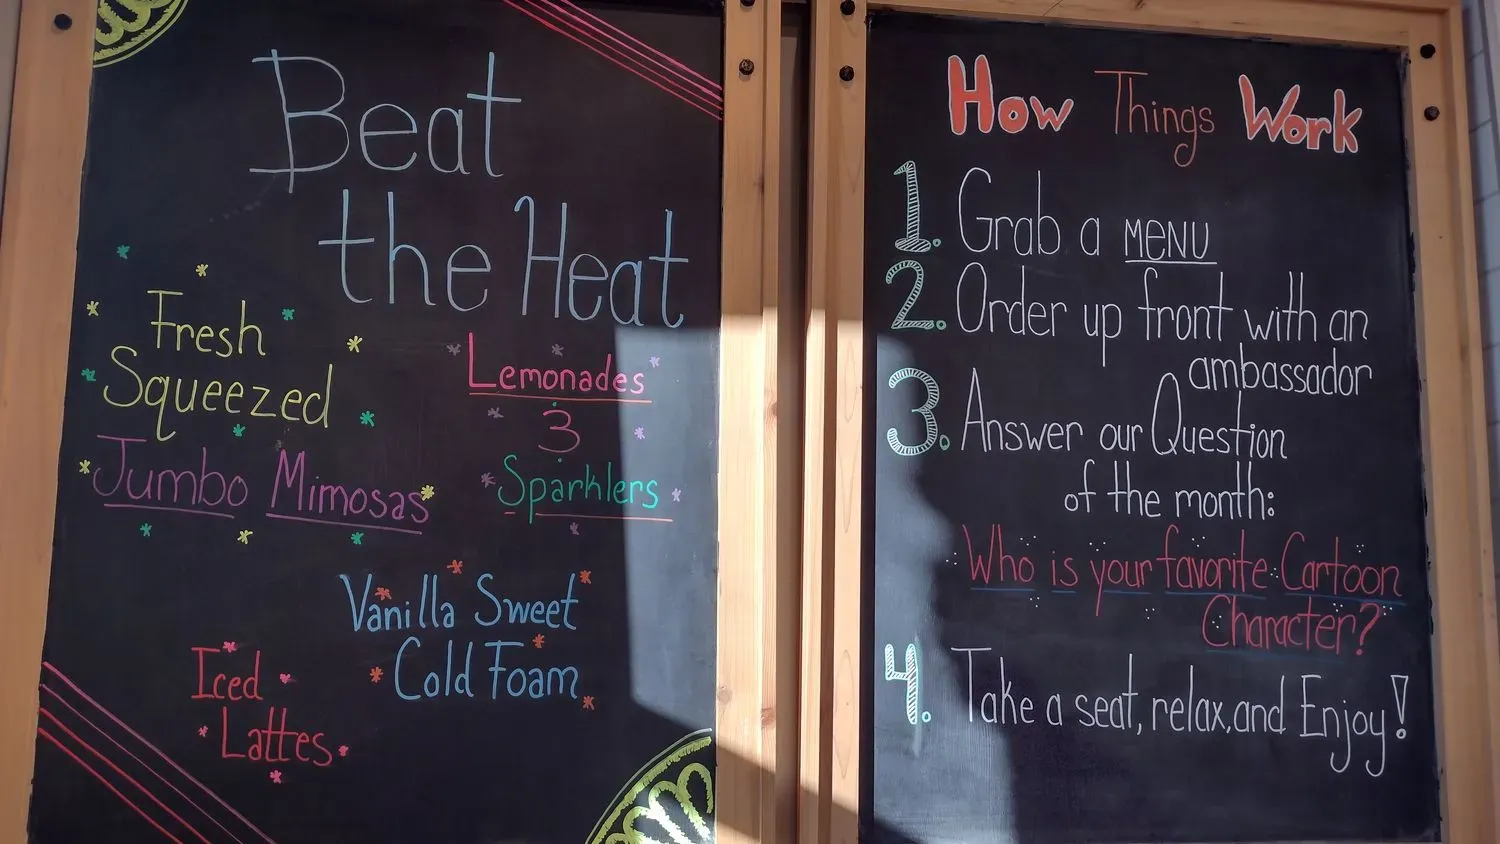 Beat
the Heat
Fresh
Squeezed
Jumbo Mimosas
Lemonades
3
Sparklers
Vanilla Sweet
Cold Foam
Iced
Lattes
How Things Work
1. Grab a MENU
2. Order up front with an
ambassador
3. Answer our Question
of the month:
Who is your favorite Cartoon
Character?
4. Take a seat, relax, and Enjoy!